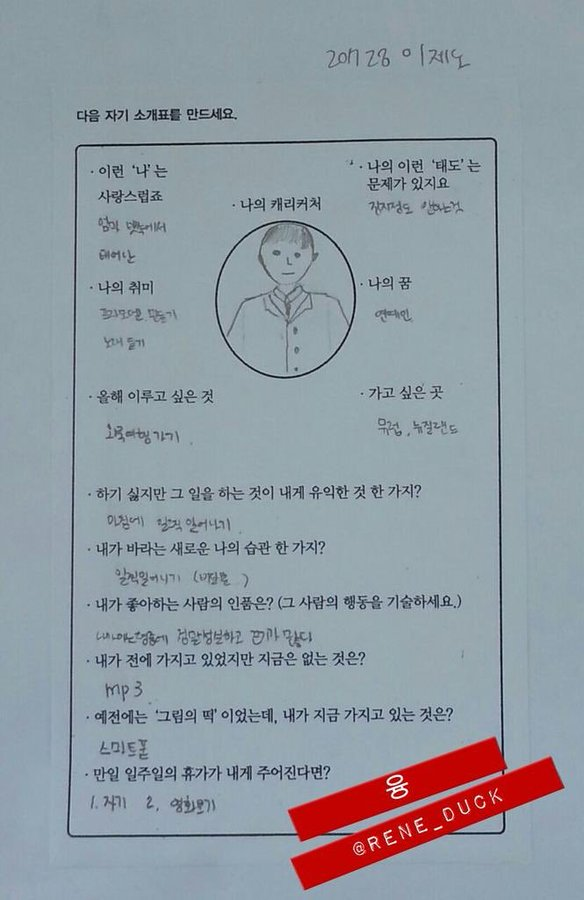 20728 이제노
다음 자기 소개표를 만드세요.
· 이런 '나'는
사랑스럽죠
엄마 뱃속에서
태어난
· 나의 캐리커처
· 나의 이런 '태도'는
문제가 있지요
· 나의 취미
프라모델 만들기
노래 듣기
· 나의 꿈
연예인
· 올해 이루고 싶은 것
외국여행가기
· 가고 싶은 곳
유럽, 뉴질랜드
· 하기 싫지만 그 일을 하는 것이 내게 유익한 것 한 가지?
아침에 일찍 일어나기
· 내가 바라는 새로운 나의 습관 한 가지?
일찍일어나기
· 내가 좋아하는 사람의 인품은? (그 사람의 행동을 기술하세요.)
내가아는형중에 정말성실하고 끈기가 많다
· 내가 전에 가지고 있었지만 지금은 없는 것은?
mp3
· 예전에는 '그림의 떡'이었는데, 내가 지금 가지고 있는 것은?
스마트폰
· 만일 일주일의 휴가가 내게 주어진다면?
1. 자기 2. 영화보기
융
@RENE_DUCK